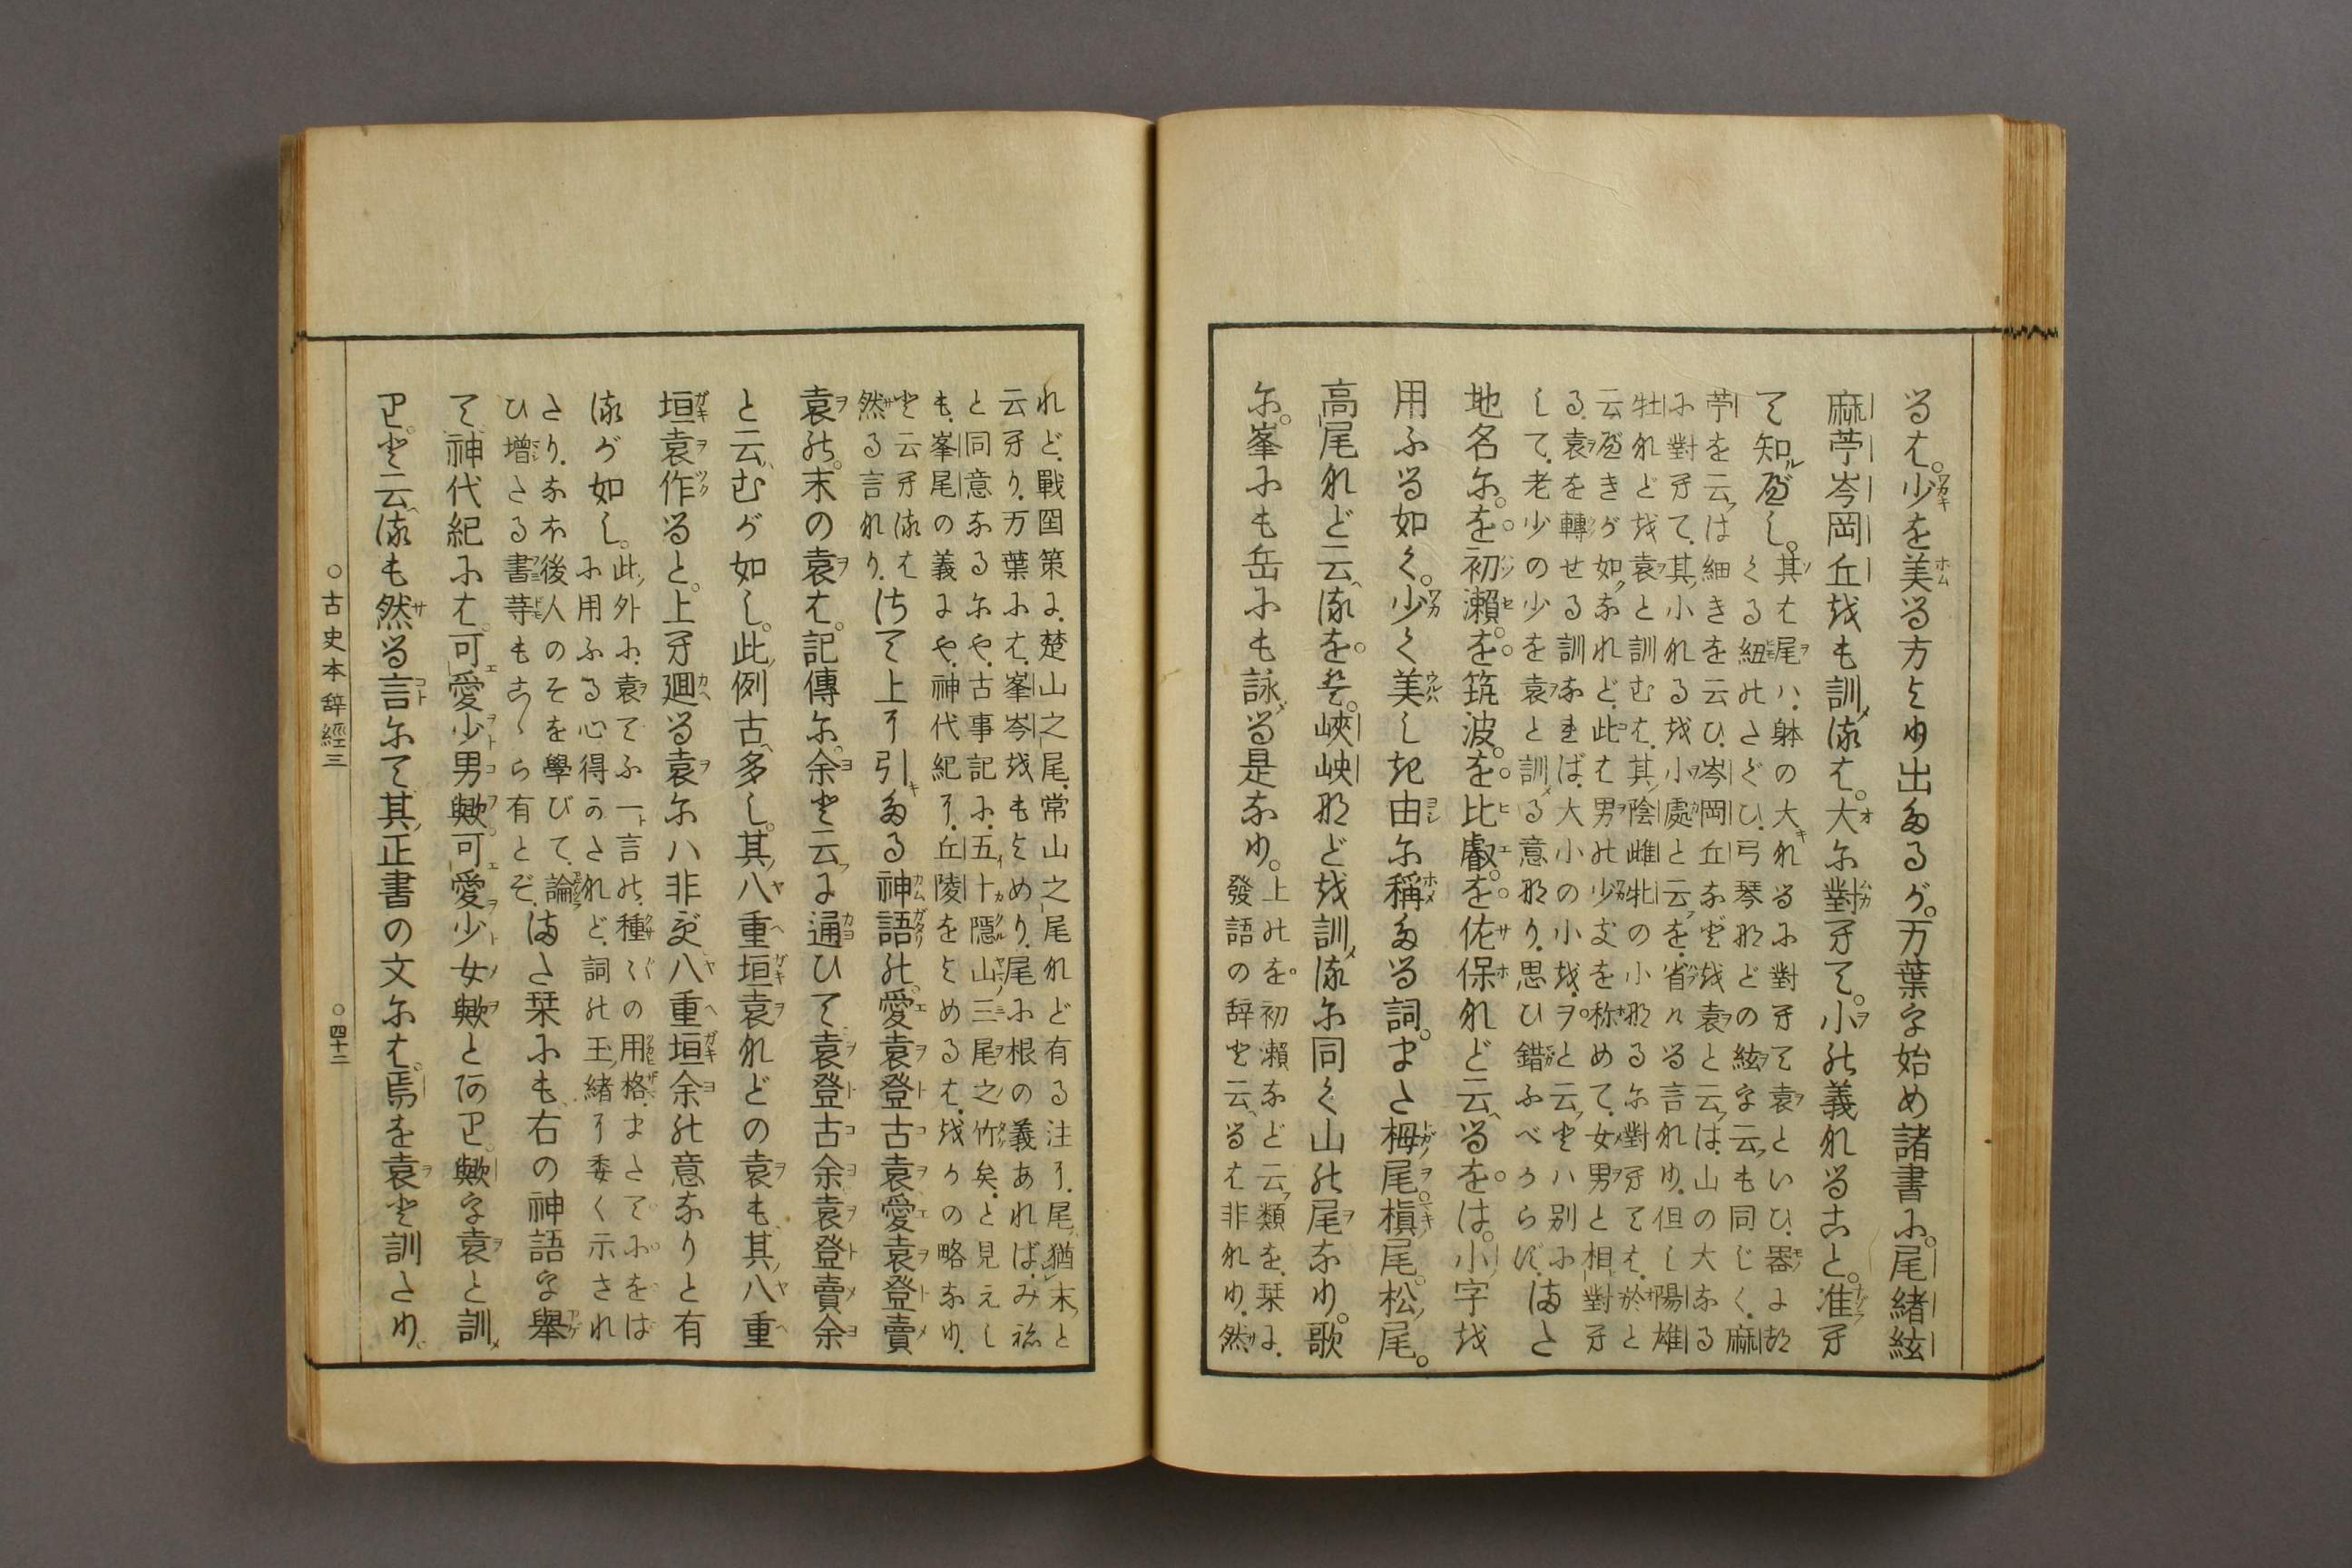 るは。少を美る方より出たるが。万葉を始め諸書に。尾緒絃
麻苧岑岡丘をも訓るは。大に對へて。小の義なること。准へ
て知べし。
其は尾ハ、躰の大なるに對へて袁といひ、器に
くる紐のさがひ、弓琴などの絃を云も同じく、麻
苧を云は細きを云ひ、岑岡丘など を袁と云は、山の大なる
に對へて、其小なるを小處と云を、省ける言なり、但し陽雄
牡などを袁と訓むは、其陰雌牝の小なるに對へては、於と
云べきが如なれど、此は男の少きを称めて、女男と相對へ
る、袁を轉せる訓なれば、大小の小を、ヲと云とハ別に
して、老少の少を袁と訓る意なり、思ひ錯ふべからず、
また
地名に。を初瀬。を筑波。を比叡。を佐保など云るを は。小字を
用ふる如く。少く美しき由に稱たる詞。また栂尾。槙尾。松尾。
高尾など云るを。是。峽岟などを訓るに同く山の尾なり。歌
に。峯にも岳にも詠る是なり。
上のを 初瀬など云類を、栞に、
發語の辞と云るは非なり、然
れど、戰国策に、楚山之尾、常山之尾など有る注に、尾猶末と
云へり、万葉には、峯岑をもよめり、尾に根の義あれば、みね
と同意なるにや、古事記に、五十隱山三尾之竹矣、と見えし
も、峯尾の義にや、神代紀に、丘陵ををとよめるは、をかの略なり、
と云へるは
然る言なり、
さて上に引たる神語の。愛袁登古袁愛袁登賣
袁の。末の袁は。記傳に。余と云に通ひて袁登古余袁登賣余
と云むが如し。此例古多し。其八重垣袁などの袁も、其八重
垣袁作ると。上へ廻る袁にハ非ず八重垣余の意なりと有
るが如し。
此外に、袁てふ一言の、種々の用格、またてにをは
に用ふる心得のされど、詞の玉緒に委く示され
たり、なほ後人のそを學びて、論
ひ増さる書等もこゝら有とぞ、
また栞にも、右の神語を舉
て神代紀には。可愛少男歟可愛少女歟とあり。歟を袁と訓
り。と云るも然る言にて其正書の文には。焉を袁と訓たり。
○古史本辞經三
○四十二